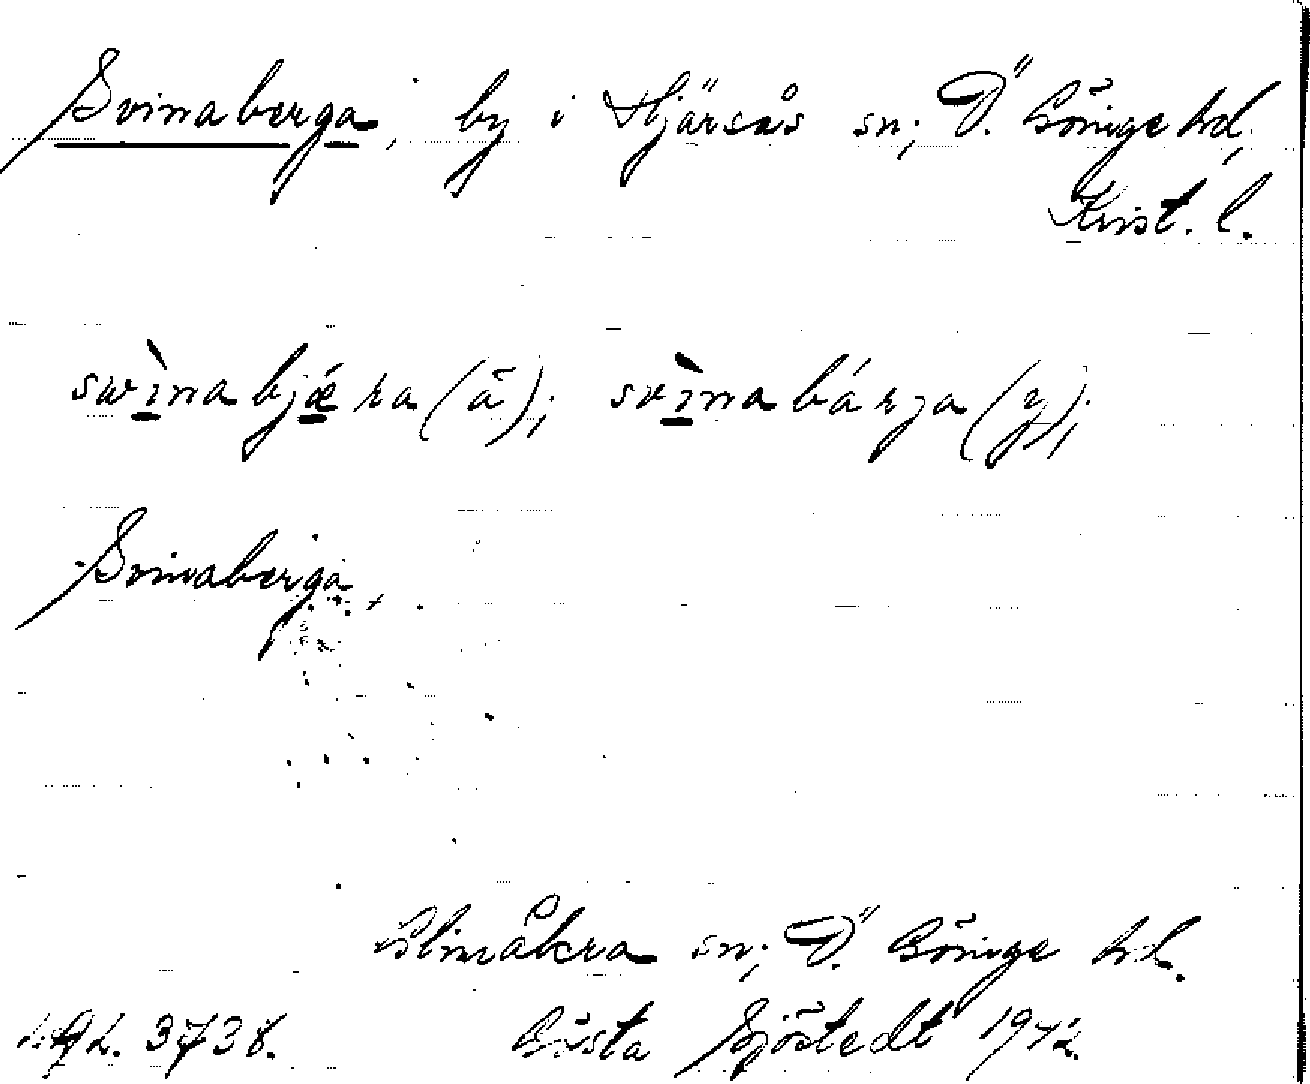 Svinaberga, by i Hjärsås sn; Ö. Göinge hd,
Krist. l.
swìnabjæra (ä); svìnabárja (y);
Svinaberga,
Glimåkra sn; Ö. Göinge hd.
3738. Gösta Sjöstedt 1942.